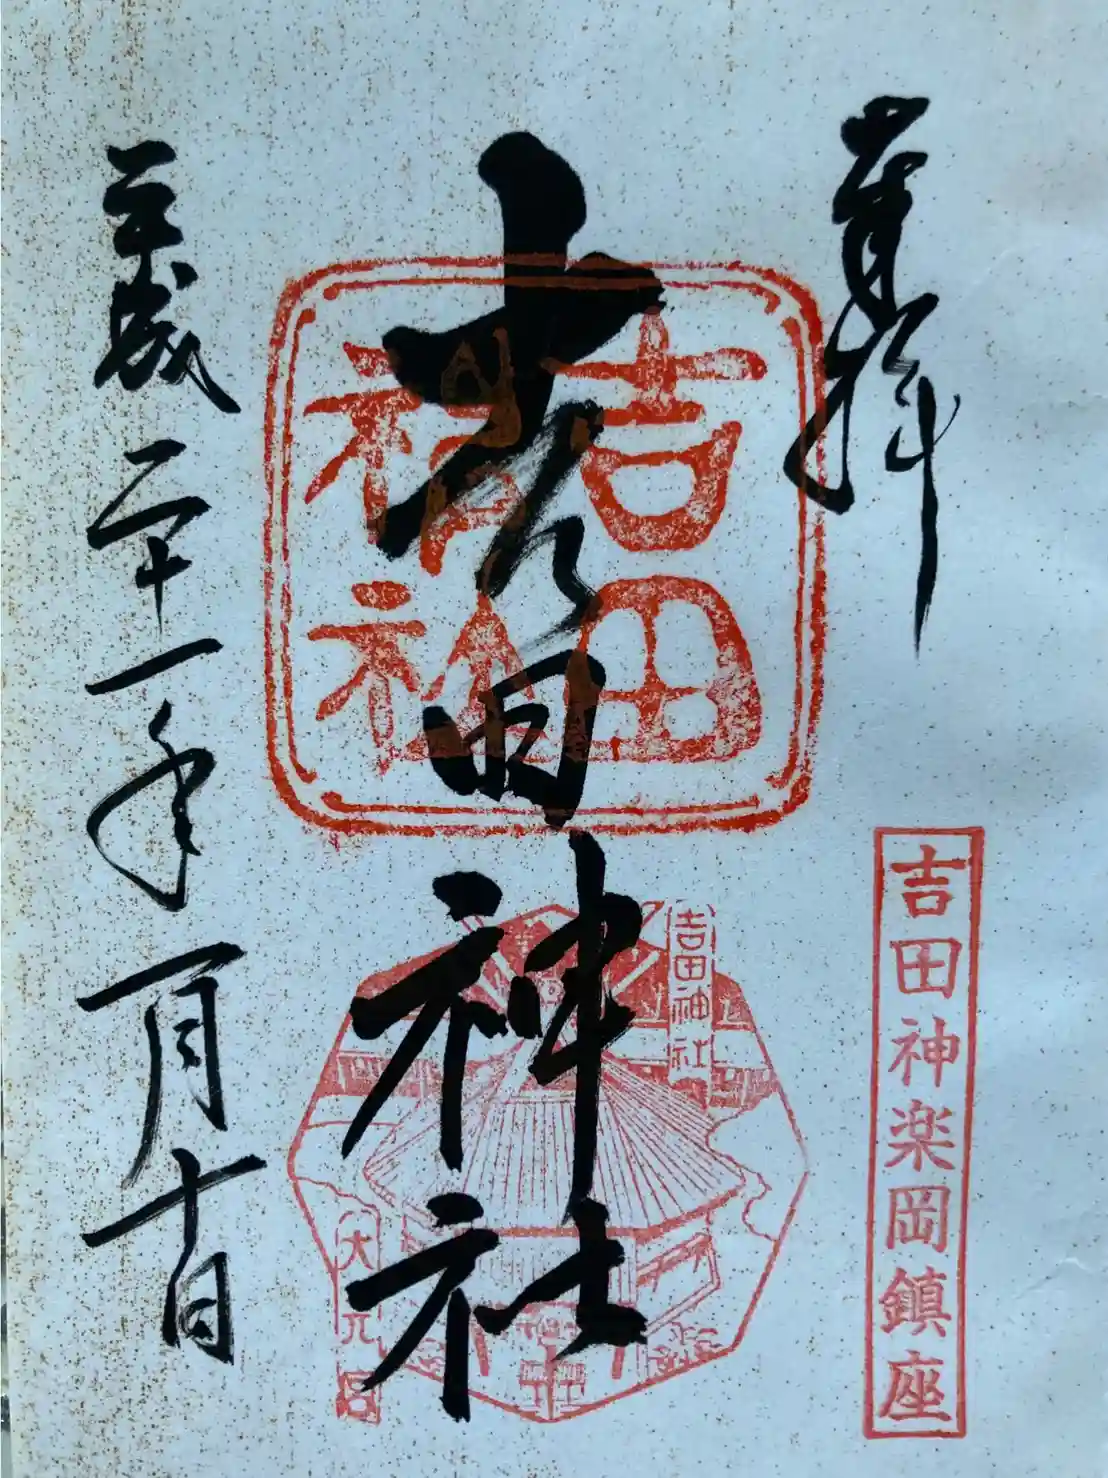 奉拝
吉田神楽岡鎮座
吉田神社
吉田神社
吉田神社
大元宮
平成二十一年一月十日